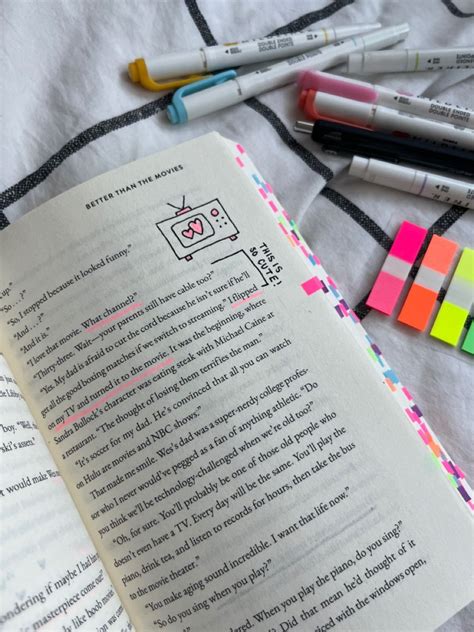 DOUBLE ENDED
DOUBLE POINTE
DOUBLE ENDED
DOUBLE POINTE
BETTER THAN THE MOVIES
THIS IS
SO CUTE!
up."
"So, I stopped because it looked funny."
"And . . . ?"
"And it is."
"I love that movie. What channel?"
"Thirty-three. Wait—your parents still have cable too?"
"Yes. My dad is afraid to cut the cord because he isn't sure if he'll
get all the good boxing matches if we switch to streaming." I flipped
on my TV and turned it to the movie. It was the beginning, where
Sandra Bullock's character was eating steak with Michael Caine at
a restaurant. "The thought of losing them terrifies the man."
"It's soccer for my dad. He's convinced that all you can watch
on Hulu are movies and NBC shows."
That made me smile. Wes's dad was a super-nerdy college profes-
sor who I never would've pegged as a fan of anything athletic. "Do
you think we'll be technology-challenged when we're old too?"
"Oh, for sure. You'll probably be one of those old people who
doesn't even have a TV. Every day will be the same. You'll play the
piano, drink tea, and listen to records for hours, then take the bus
to the movie theater."
"You make aging sound incredible. I want that life now."
"So do you sing when you play?"
"When you play the piano, do you sing?"
Did that mean he'd thought of it
with the windows open,
boy. "Wel,
ski's asset.
it would make
ondering if maybe I had
masterpiece come
like hoob